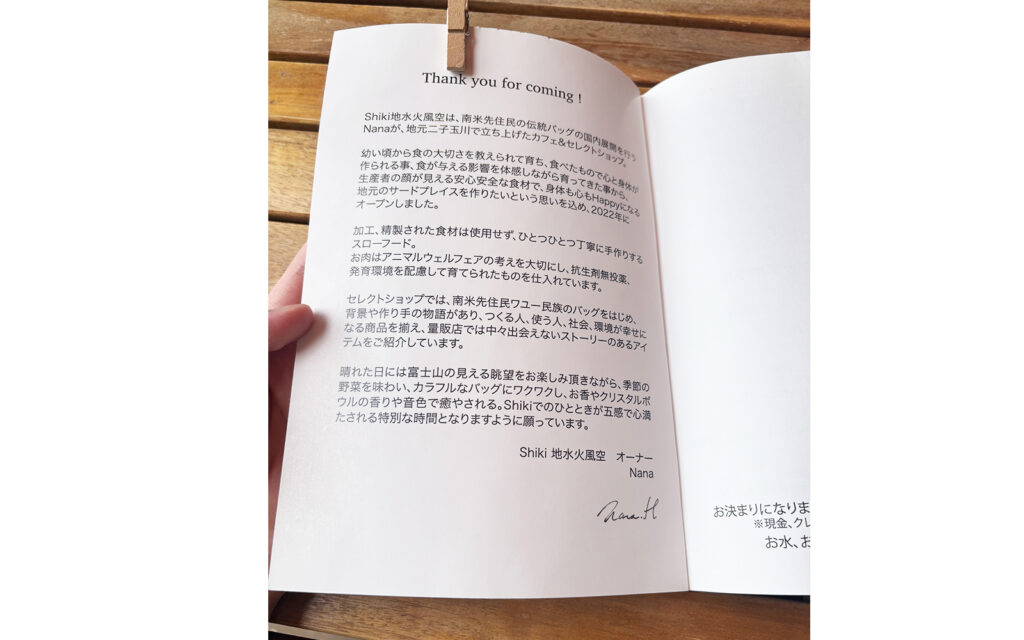 Thank you for coming !
Shiki地水火風空は、南米先住民の伝統バッグの国内展開を行う
Nanaが、地元二子玉川で立ち上げたカフェ&セレクトショップ。
幼い頃から食の大切さを教えられて育ち、食べたもので心と身体が
作られる事、食が与える影響を体感しながら育ってきた事から、
生産者の顔が見える安心安全な食材で、身体も心もHappyになる
地元のサードプレイスを作りたいという思いを込め、2022年に
オープンしました。
加工、精製された食材は使用せず、ひとつひとつ丁寧に手作りする
スローフード。
お肉はアニマルウェルフェアの考えを大切にし、抗生剤無投薬、
発育環境を配慮して育てられたものを仕入れています。
セレクトショップでは、南米先住民ワユー民族のバッグをはじめ、
背景や作り手の物語があり、つくる人、使う人、社会、環境が幸せに
なる商品を揃え、量販店では中々出会えないストーリーのあるアイ
テムをご紹介しています。
晴れた日には富士山の見える眺望をお楽しみ頂きながら、季節の
野菜を味わい、カラフルなバッグにワクワクし、お香やクリスタルボ
ウルの香りや音色で癒やされる。Shikiでのひとときが五感で心満
たされる特別な時間となりますように願っています。
Shiki 地水火風空　オーナー
Nana
Nana.H
お決まりになりま
※現金、クレ
お水、お